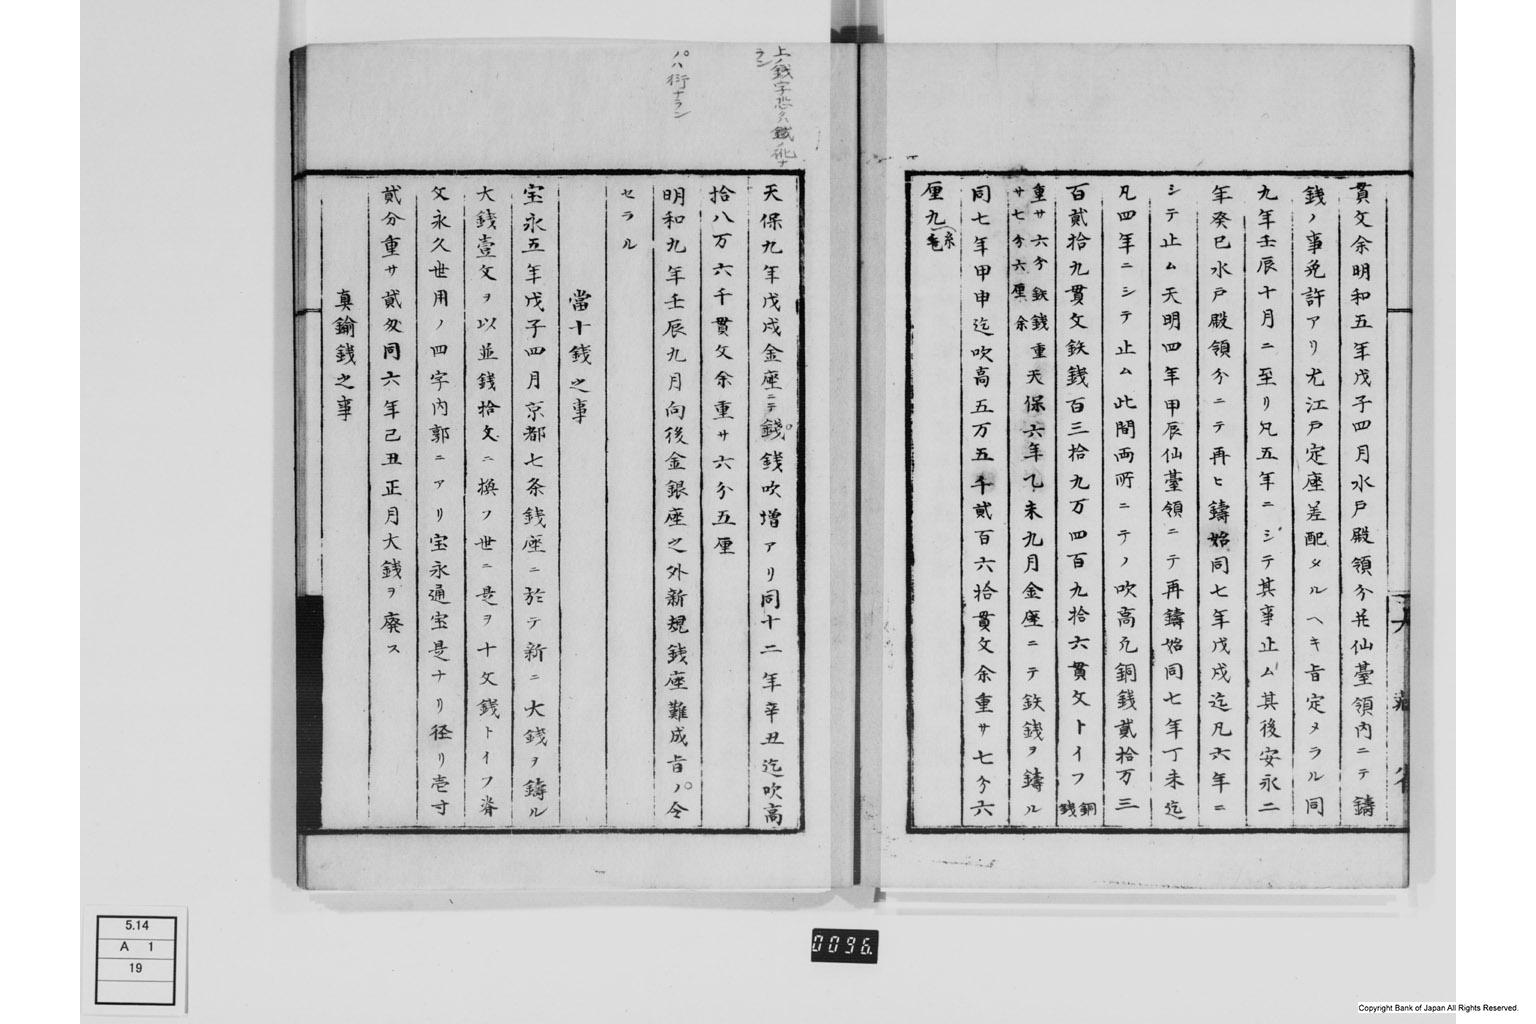 貫文余明和五年戊子四月水戸殿領分并仙臺領内ニテ鑄
錢ノ事免許アリ尤江戸定座差配タルヘキ旨定メラル同
九年壬辰十月ニ至リ凡五年ニシテ其事止ム其後安永二
年癸巳水戸殿領分ニテ再ヒ鑄始同七年戊戌迄凡六年ニ
シテ止ム天明四年甲辰仙臺領ニテ再鑄始同七年丁未迄
凡四年ニシテ止ム此間両所ニテノ吹高凡銅錢貳拾万三
百貳拾九貫文鉄錢百三拾九万四百九拾六貫文トイフ銅錢
重サ六分鉄錢重
サ七分六厘余
天保六年乙未九月金座ニテ鉄錢ヲ鑄ル
同七年甲申迄吹高五万五千貳百六拾貫文余重サ七分六
厘九
上ノ錢字恐クハ鐵ノ訛ナ
ラン
ノハ衍ナラン
天保九年戊戌金座ニテ錢錢吹増アリ同十二年辛丑迄吹高
拾八万六千貫文余重サ六分五厘
明和九年壬辰九月向後金銀座之外新規錢座難成旨ノ令
セラル
當十錢之事
宝永五年戊子四月京都七条錢座ニ於テ新ニ大錢ヲ鑄ル
大錢壹文ヲ以並錢拾文ニ換フ世ニ是ヲ十文錢トイフ脊
文永久世用ノ四字内郭ニアリ宝永通宝是ナリ径リ壱寸
貳分重サ貳匁同六年己丑正月大錢ヲ廃ス
真鍮錢之事
5.14
A 1
19
0096
Copyright Bank of Japan All Rights Reserved.